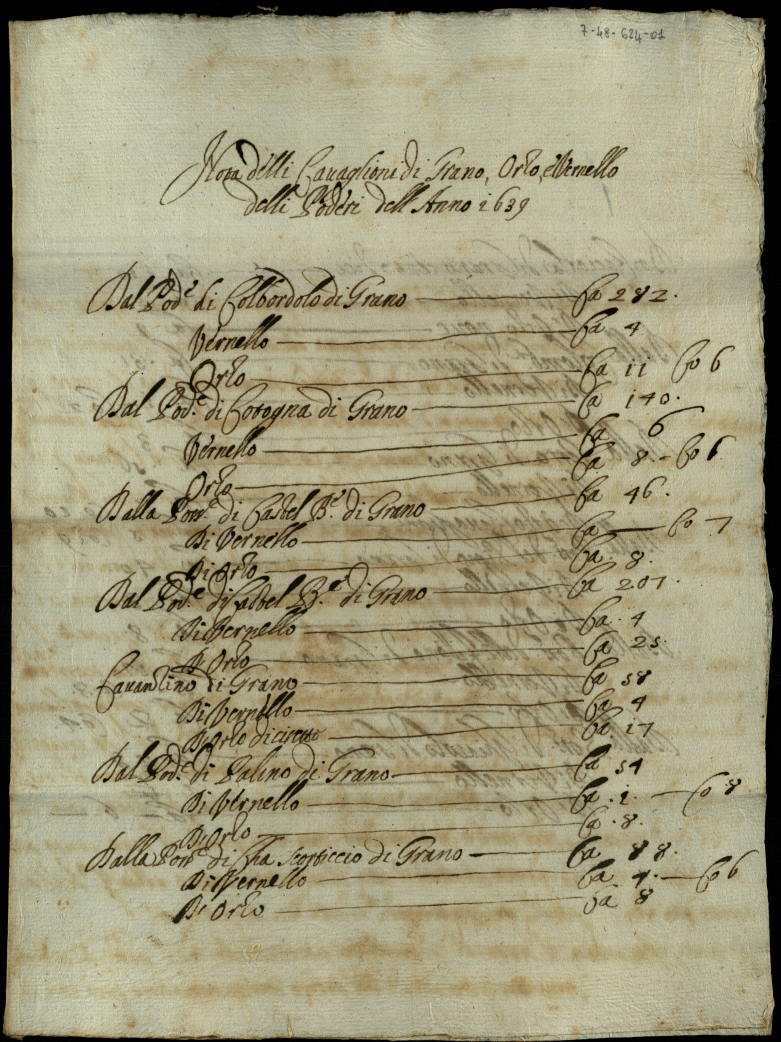 7-48-624-01
Nota delli Cavaglioni di Grano, Orzo, e Vernello
delli Poderi dell'Anno 1639
Dal Pod.e di Colbordolo di Grano Ca 282.
Vernello Ca 4
Orzo Ca 11 Co 6
Dal Pod.e di Cotogna di Grano Ca 140.
Vernello Ca 6
Orzo Ca 8. Co 6
Dalla Poss.e di Castel B.e di Grano Ca 46.
Di Vernello Ca Co 7
Di Orzo Ca. 8.
Dal Pod.e di Castel B.e di Grano Ca 207.
Di Vernello Ca. 4
Di Orzo Ca 25.
Cavantino di Grano Ca 58
Di Vernello Ca 4
Di Orzo di Ca. 17
Dal Pod.e di Palino di Grano Ca 54
Di Vernello Ca. 1. Co 8
Di Orzo Ca. 8.
Dalla Poss.e di di Grano Ca 88.
Di Vernello Ca. 4. Co 6
Di Orzo Ca 8